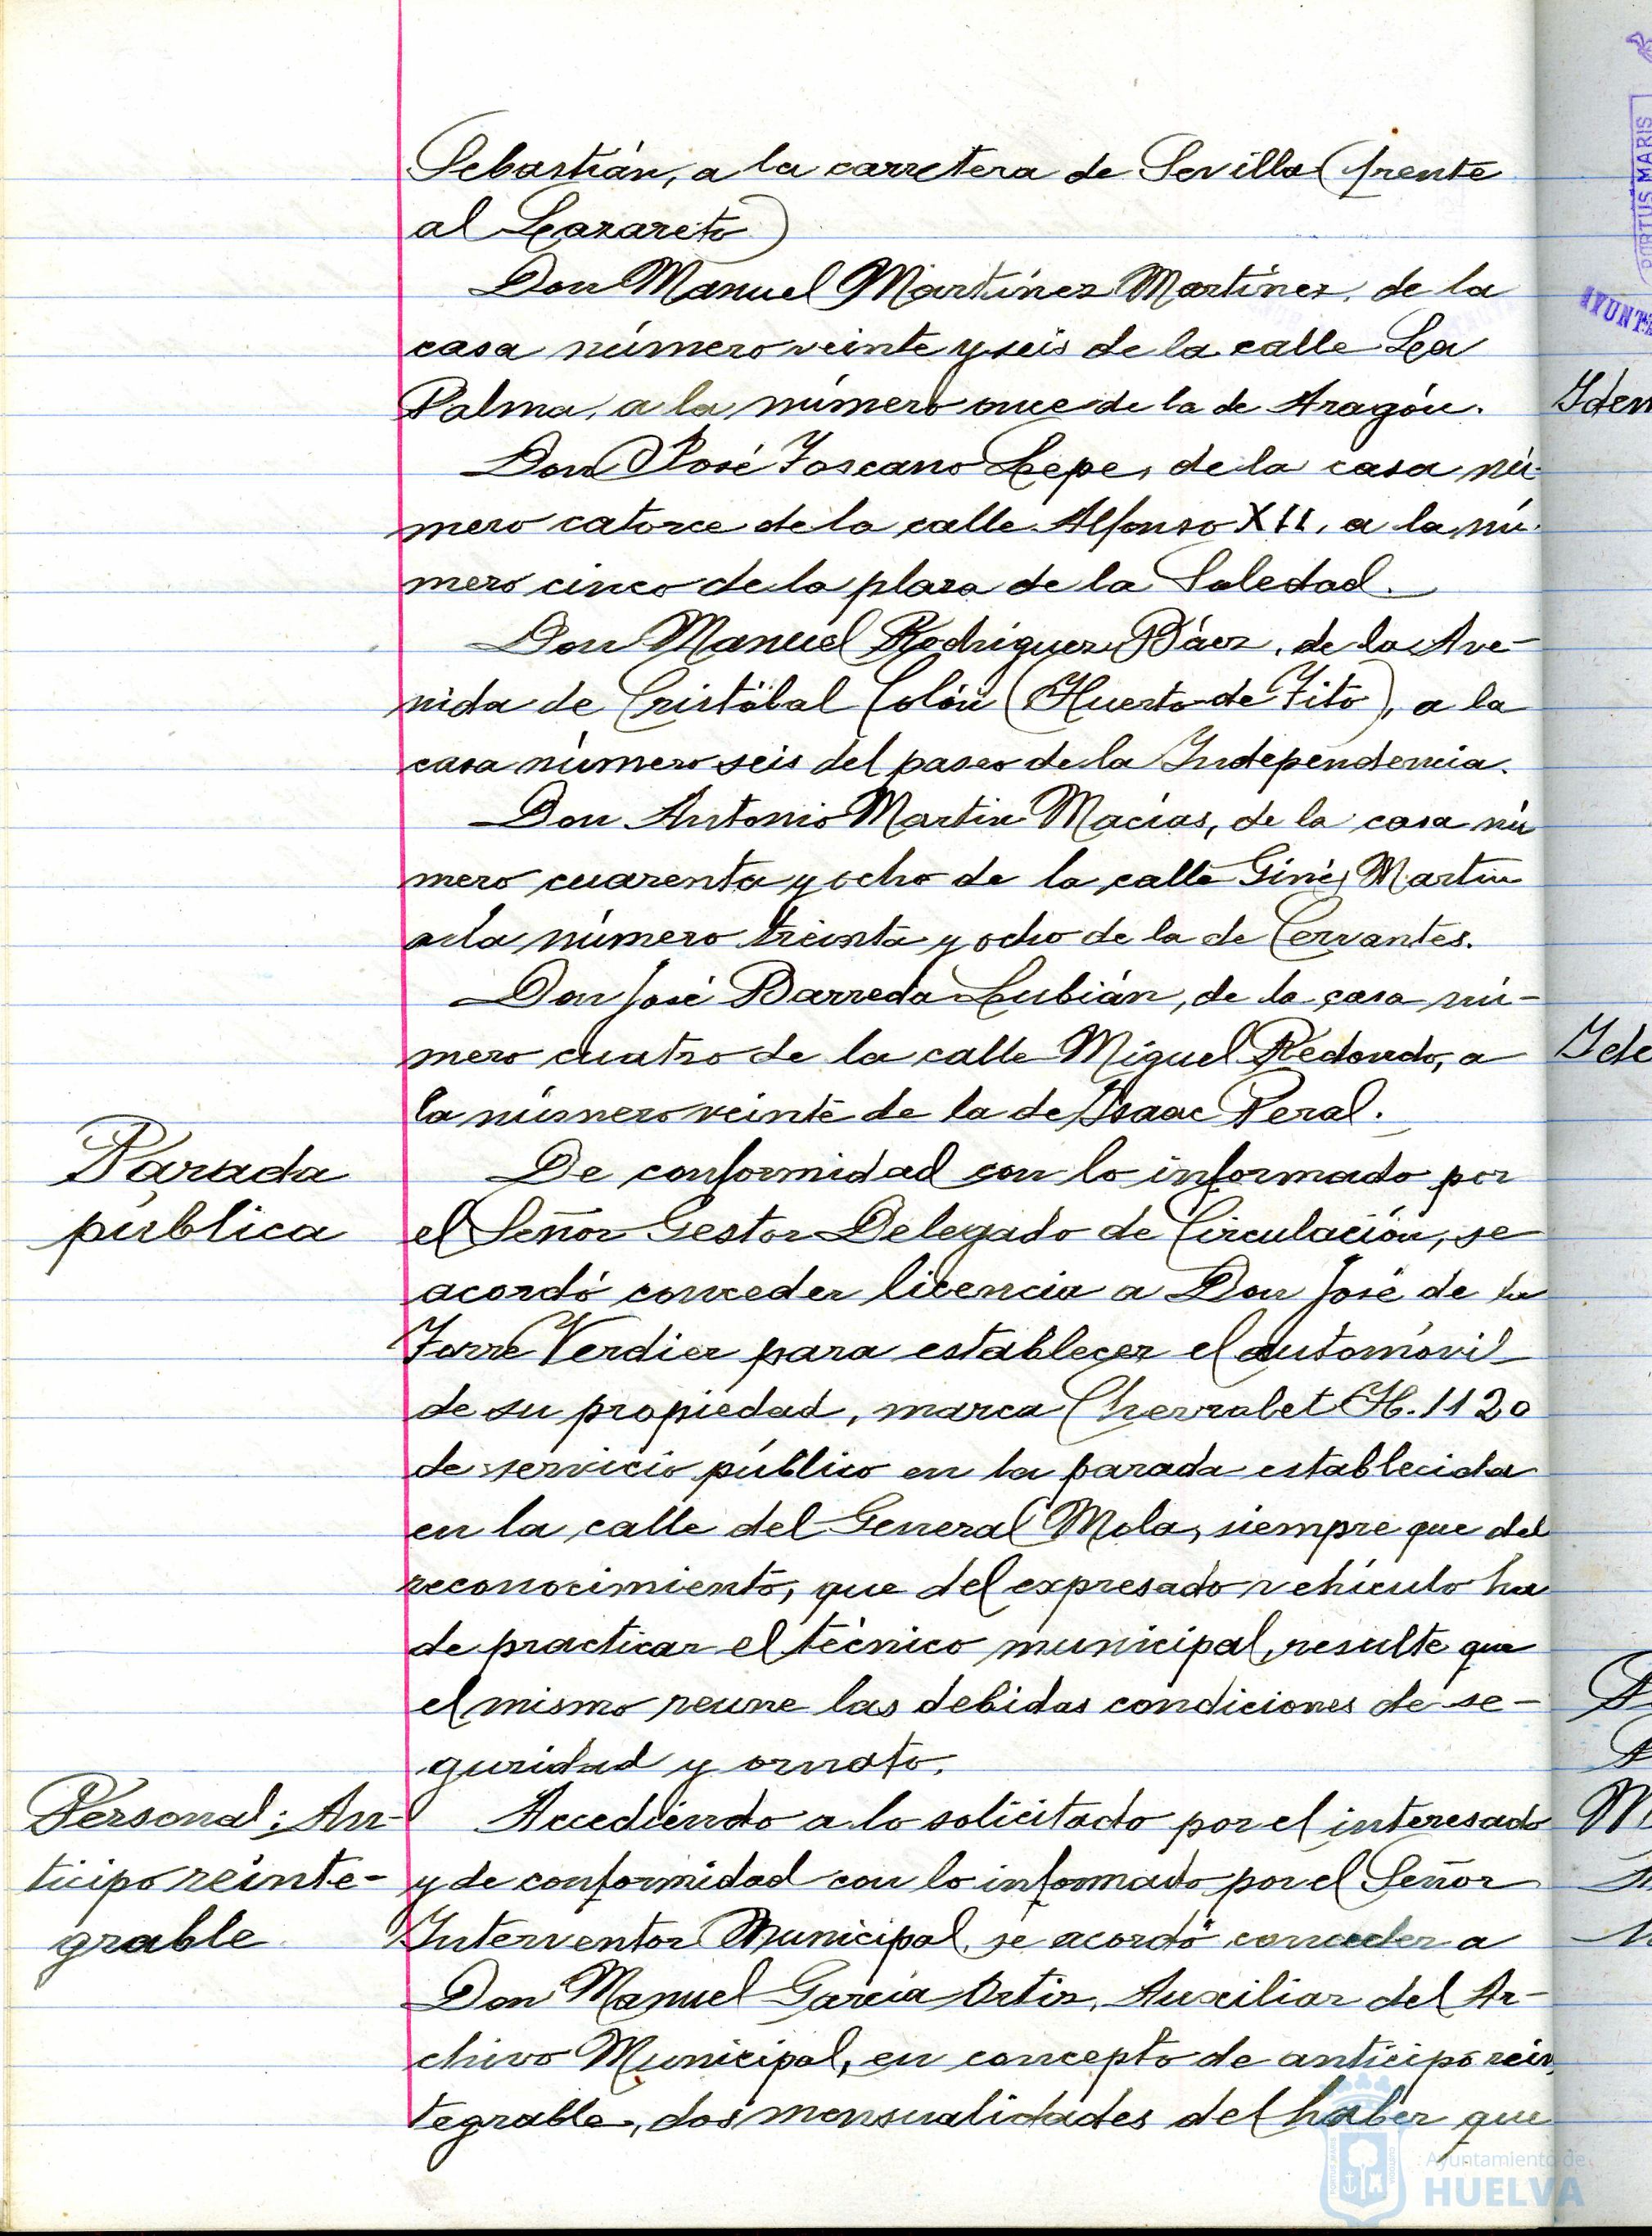 Sebastián, a la carretera de Sevilla (frente
al Lazareto)
Don Manuel Martínez Martínez, de la
casa número veinte y seis de la calle La
Palma, a la número once de la de Aragón.
Don José Toscano Lepe, de la casa nú-
mero catorce de la calle Alfonso XII, a la nú-
mero cinco de la plaza de la Soledad.
Don Manuel Rodríguez Báez, de la Ave-
nida de Cristóbal Colón (Huerto de Tito), a la
casa número seis del paseo de la Independencia.
Don Antonio Martin Macías, de la casa nú
mero cuarenta y ocho de la calle Ginés Martin
a la número treinta y ocho de la de Cervantes.
Don José Barreda Lubián, de la casa nú-
mero cuatro de la calle Miguel Redondo, a
la número veinte de la de Isaac Peral.
Parada
pública
De conformidad con lo informado por
el Señor Gestor Delegado de Circulación, se
acordó conceder licencia a Don José de la
Torre Verdier para establecer el automóvil
de su propiedad, marca Chevrolet H. 1120
de servicio público en la parada establecida
en la calle del General Mola, siempre que del
reconocimiento, que del expresado vehículo ha
de practicar el técnico municipal, resulte que
el mismo reune las debidas condiciones de se-
guridad y ornato.
Personal: An-
ticipo reinte-
grable
Accediendo a lo solicitado por el interesado
y de conformidad con lo informado por el Señor
Interventor Municipal, se acordó conceder a
Don Manuel García Ortiz, Auxiliar del Ar-
chivo Municipal, en concepto de anticipo rein
tegrable, dos mensualidades del haber que
PORTUS MARIS
AYUNTA
Idem
Ide
Ayuntamiento de
HUELVA